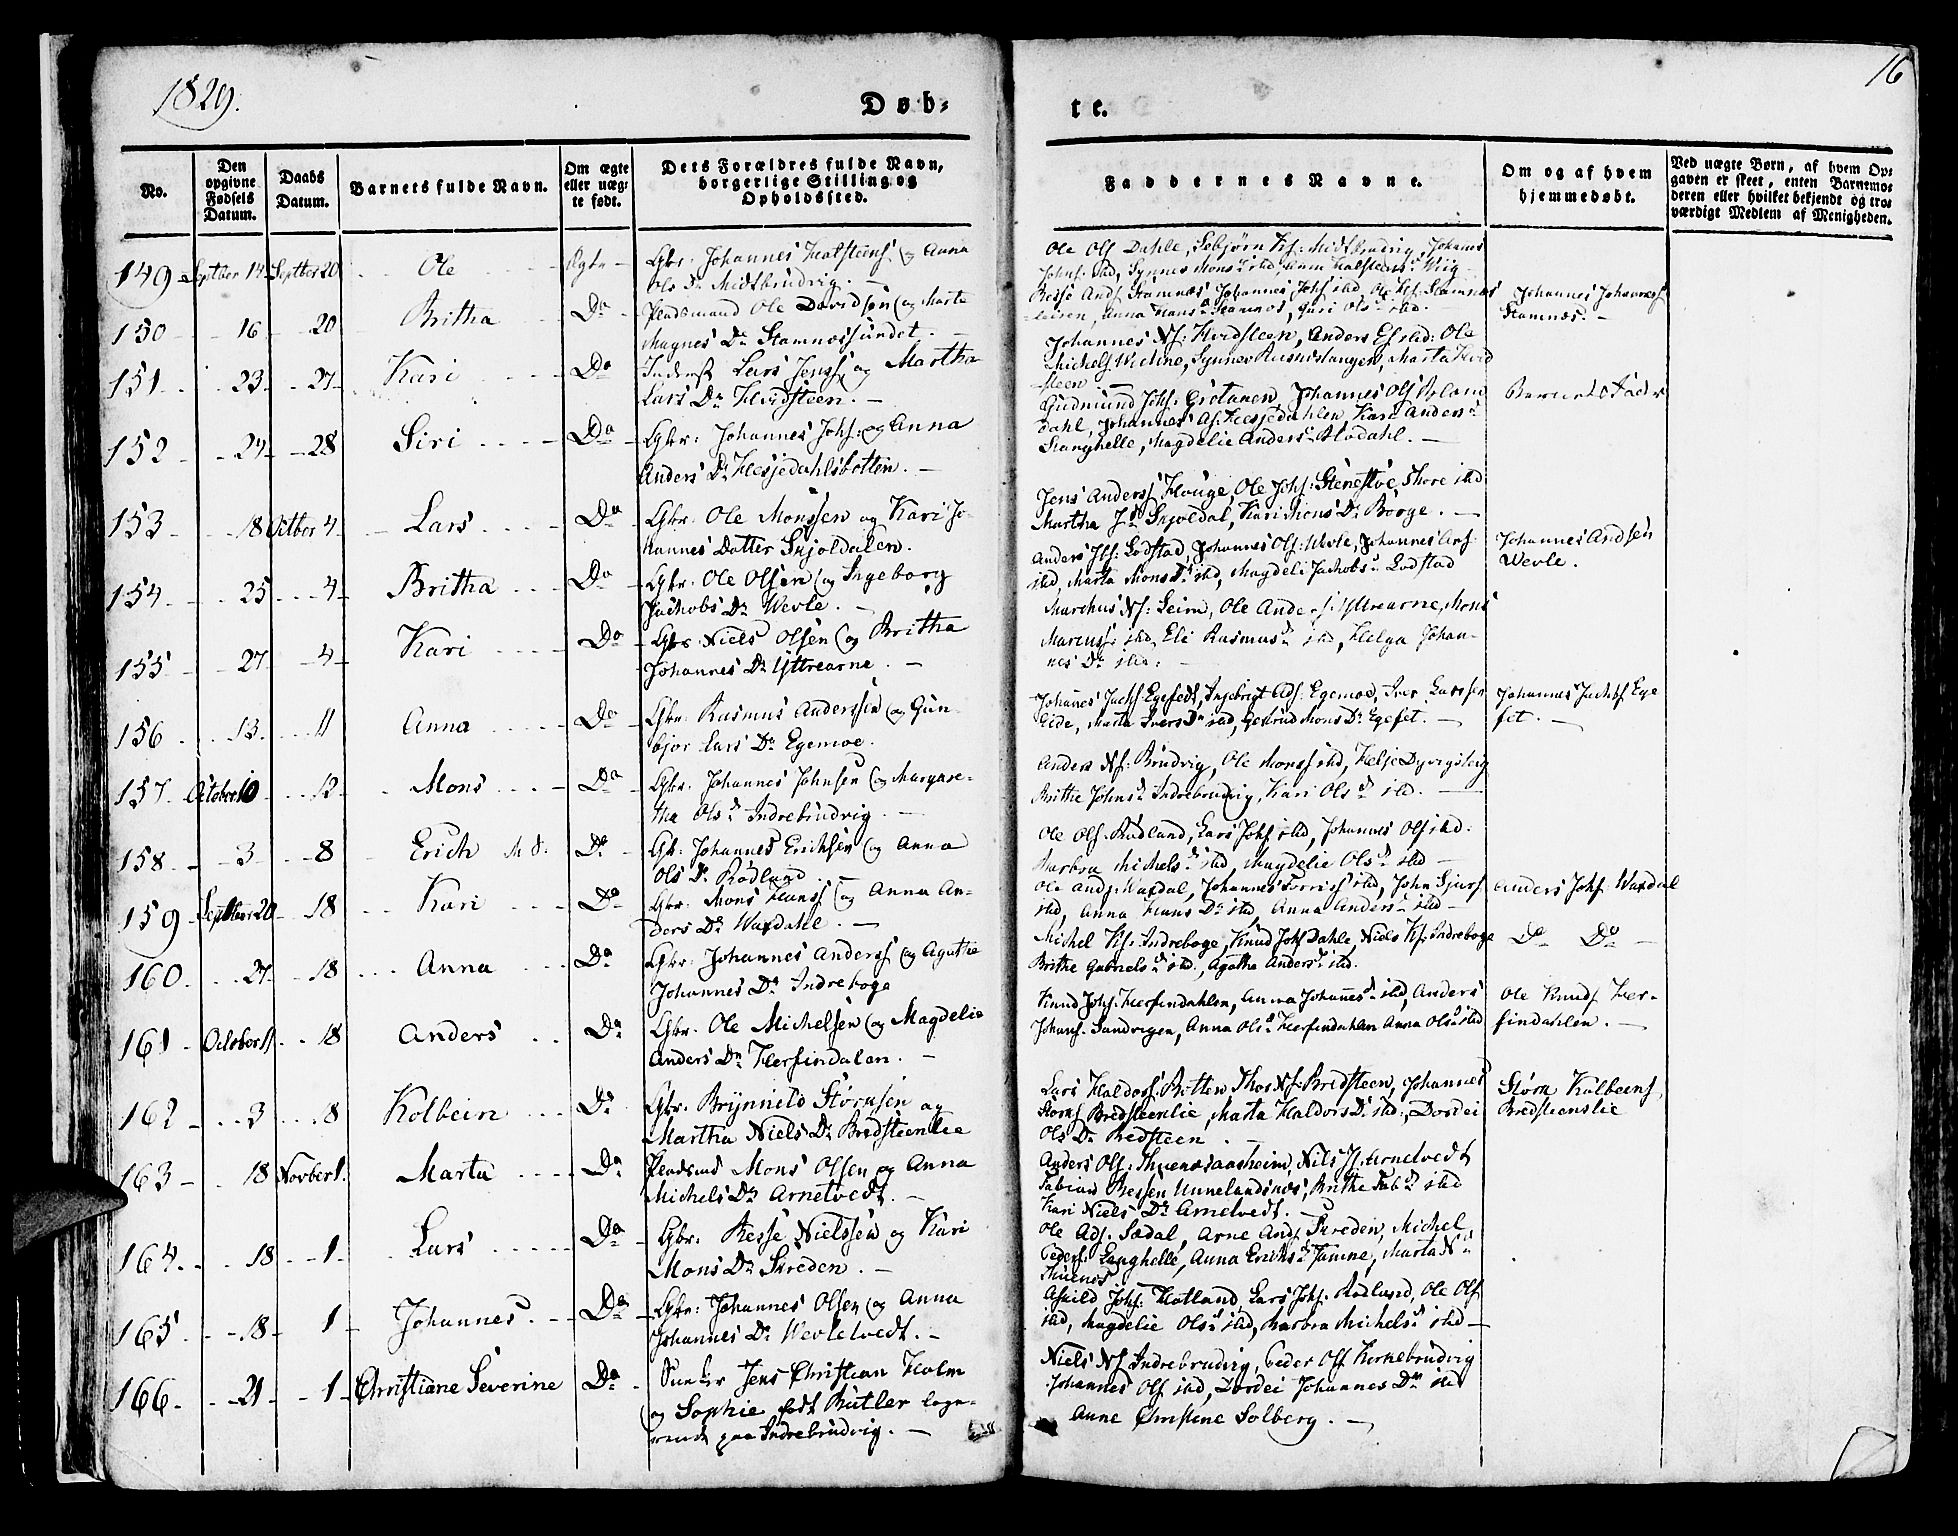 1829.
16
Døb-
te.
No.
Den opgivne Fødsels Datum.
Daabs Datum.
Barnets fulde Navn.
Om ægte eller uægte født.
Dets Forældres fulde Navn, borgerlige Stilling og Opholdssted.
Faddernes Navne.
Om og af hvem hjemmedøbt.
Ved uægte Børn, af hvem Opgaven er skeet, enten Barnemoderen eller hvilket bekjendt og troværdigt Medlem af Menigheden.
149 Septber 14 Septber 20 Ole Ægte Gbr. Johannes Halsteens. og Anna
Ols Dr Midtbrudvig.
Ole Ols Dahle, Sebjørn Midtbrudvig, Johannes
Johns. istd, Synnev Mons istd, Halsteens Wiig
150 16 20 Britha Do Pladsmand Ole Davidsen og Marta
Magnes Dr Stamnessundet.
Besse And. Stamnæs, Johannes Johs istd, Ole Stamnes
Anna Hans Stamnes, Guri Ols istd.
Johannes Johanness
Stamnæs.
151 23 27 Kari Do Inderst Lars Jenss. og Martha
Lars Dr Hvidsteen.
Johannes Ns: Hvidsteen, Anders istd: Ole
Michels Wichne, Synnev Marta Hvid
steen
152 24 28 Siri Do Gbr: Johannes Johs: og Anna
Anders Dr Hesjedahlsbotten.
Gudmund Johs: Grotanen, Johannes Ols
dahl, Johannes Hesjedahlen, Kari Anders
Stanghelle, Magdelie Anders Flødahl.
Barnets Fader
153 18 Octber 4 Lars Do Gbr: Ole Monssen og Kari Jo-
hannes Datter Skjoldalen.
Jens Anderss. Houge, Ole Johs: istd
Martha Skjoldal, Kari Mons Dr Borge.
154 25 4 Britha Do Gbr: Ole Olsen og Ingeborg
Jachobs Dr Wevle.
Anders Lodstad, Johannes Ols: Wevle, Johannes
istd, Marta Mons Dr istd, Magdeli Jachobs Lodstad
Johannes Andsen
Wevle.
155 27 4 Kari Do Gbr. Niels Olsen og Britha
Johannes Dr Yttrearne.
Marchus Ns: Seim, Ole Anders Yttrearne, Mons
istd, Eli Rasmus istd, Helga Johan-
nes Dr istd:
156 13 11 Anna Do Gbr. Rasmus Anderssen og Gun-
bjor Lars Dr Egemoe.
Johanes Jachs Egefedt, Ingebrigt Ads: Egemoe, Iver Larssen
Eide, Marta Ivers Dr istd, Gertrud Mons Dr Egefet.
Johannes Jachbs Ege
fet.
157 October 10 12 Mons Do Gbr. Johannes Johnsen og Margare-
tha Ols Indrebrudvig.
Anders Ns: Brudvig, Ole Monss istd,
Brithe Johns Indrebrudvig, Kari Ols istd.
158 3 8 Erich Do Gbr. Johannes Erichsen og Anna
Ols Dr Rødland.
Ole Ols. Rødland, Lars Johs istd, Johannes Ols istd.
Barbra Michels istd, Magdelie Ols istd
159 Septber 20 18 Kari Do Gbr. Mons Hanss og Anna An-
ders Dr Waxdahl.
Ole Ands. Waxdal, Johannes istd, John Sjurs
istd, Anna Hans Dr istd, Anna Anders istd
Anders Johs. Waxdal
160 27 18 Anna Do Gbr. Johannes Anderss og Agatha
Johannes Dr Indreboge
Michel Indreboge, Knud Johs Dahle, Niels Indreboge
Brithe Gabriels istd, Agatha Anders istd.
Do Do
161 October 11 18 Anders Do Gbr. Ole Michelsen og Magdelie
Anders Dr Herfindalen.
Knud Johs. Herfindahlen, Anna Johannes istd, Anders
Johans. Sandvigen, Anna Ols Herfindahlen Anna Ols istd
Ole Knuds Her-
findahlen.
162 3 18 Kolbein Do Gbr. Brynnild Størksen og
Martha Niels Dr Bredsteenlie
Lars Haldors. Botten Thor Ns. Bredsteen, Johannes
Størks Bredsteenlie, Marta Haldors Dr istd, Dordei
Ols Dr Bredsteen
Størk Kolbeens
Bredsteenslie
163 18 Novber 1. Marta Do Pladsmd Mons Olsen og Anna
Michels Dr Arnetvedt.
Anders Ols. Nils Arnetvedt
Fabian Bessen Unnelandsnes, Brithe Fab istd
Kari Niels Dr Arnetvedt.
164 18 1 Lars Do Gbr. Besse Nielssen og Kari
Mons Dr Skreden.
Ole Ads. Sædal, Arne And. Skreden, Michel
Peders. Langhelle, Anna Erichs Tamne, Marta
165 18 1 Johannes Do Gbr. Johannes Olsen og Anna
Johannes Dr Wevletvedt.
Askild Johs. Hotland, Lars Johs. Rødland, Ole Ols
istd, Magdelie Ols istd, Barbra Michels istd
166 21 1 Christiane Severine Do Jens Christian Holm
og Sophie født Butler loge-
rende paa Indrebrudvig.
Niels Ns Indrebrudvig, Peder Ols Kirkebrudvig
Johannes Ols istd, Dordei Johannes Dr istd
Anne Christene Solberg.